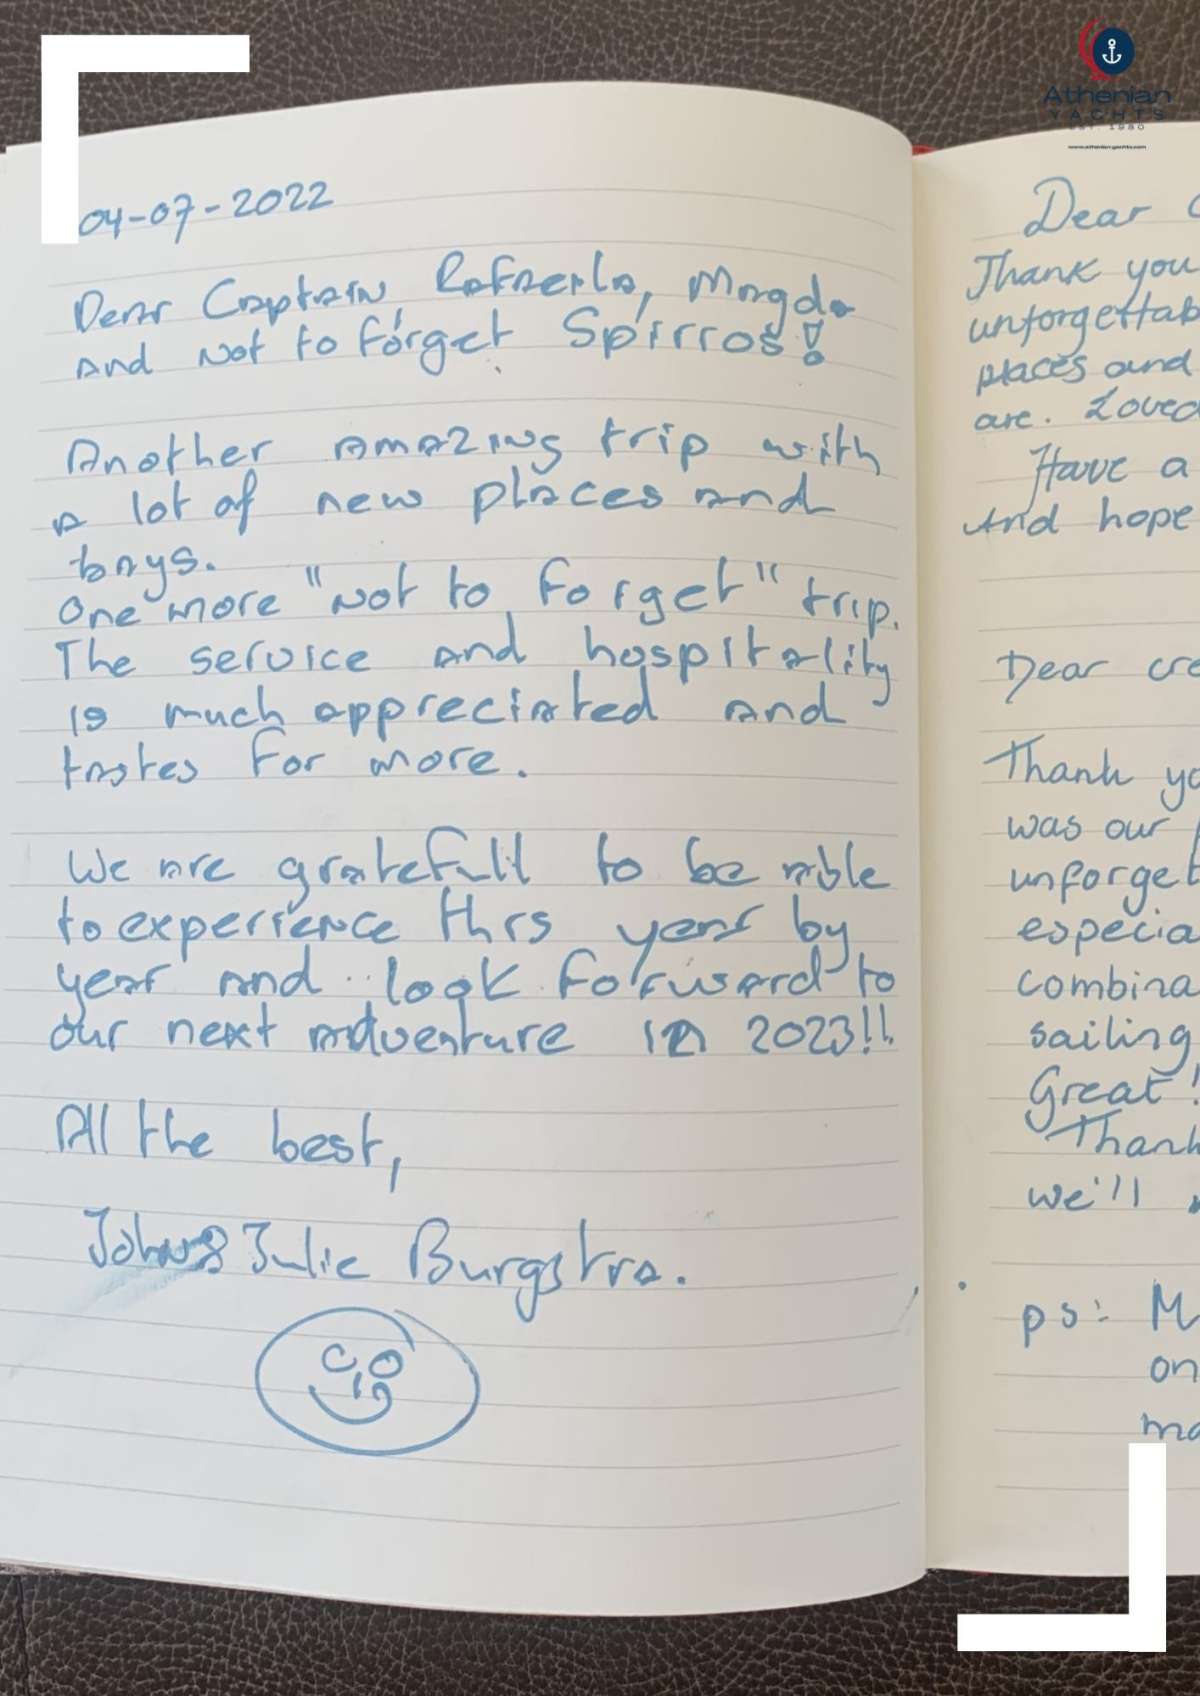 Athenian
YACHTS
EST. 1980
www.athenian-yachts.com
04-07-2022
Dear Captain, Rafaerla, Magda
and not to forget Spirros!
Another amazing trip with
a lot of new places and
bays.
One more "not to forget" trip.
The service and hospitality
is much appreciated and
tastes for more.
We are gratefull to be able
to experience this year by
year and look forward to
our next adventure in 2023!!
All the best,
John & Julie Burgstra.
Dear
Thank you
unforgettab
places and
are. Loved
Have a
And hope
Dear cre
Thank yo
was our
unforget
especia
combina
sailing
Great!
Thank
we'll
ps: M
on
ma